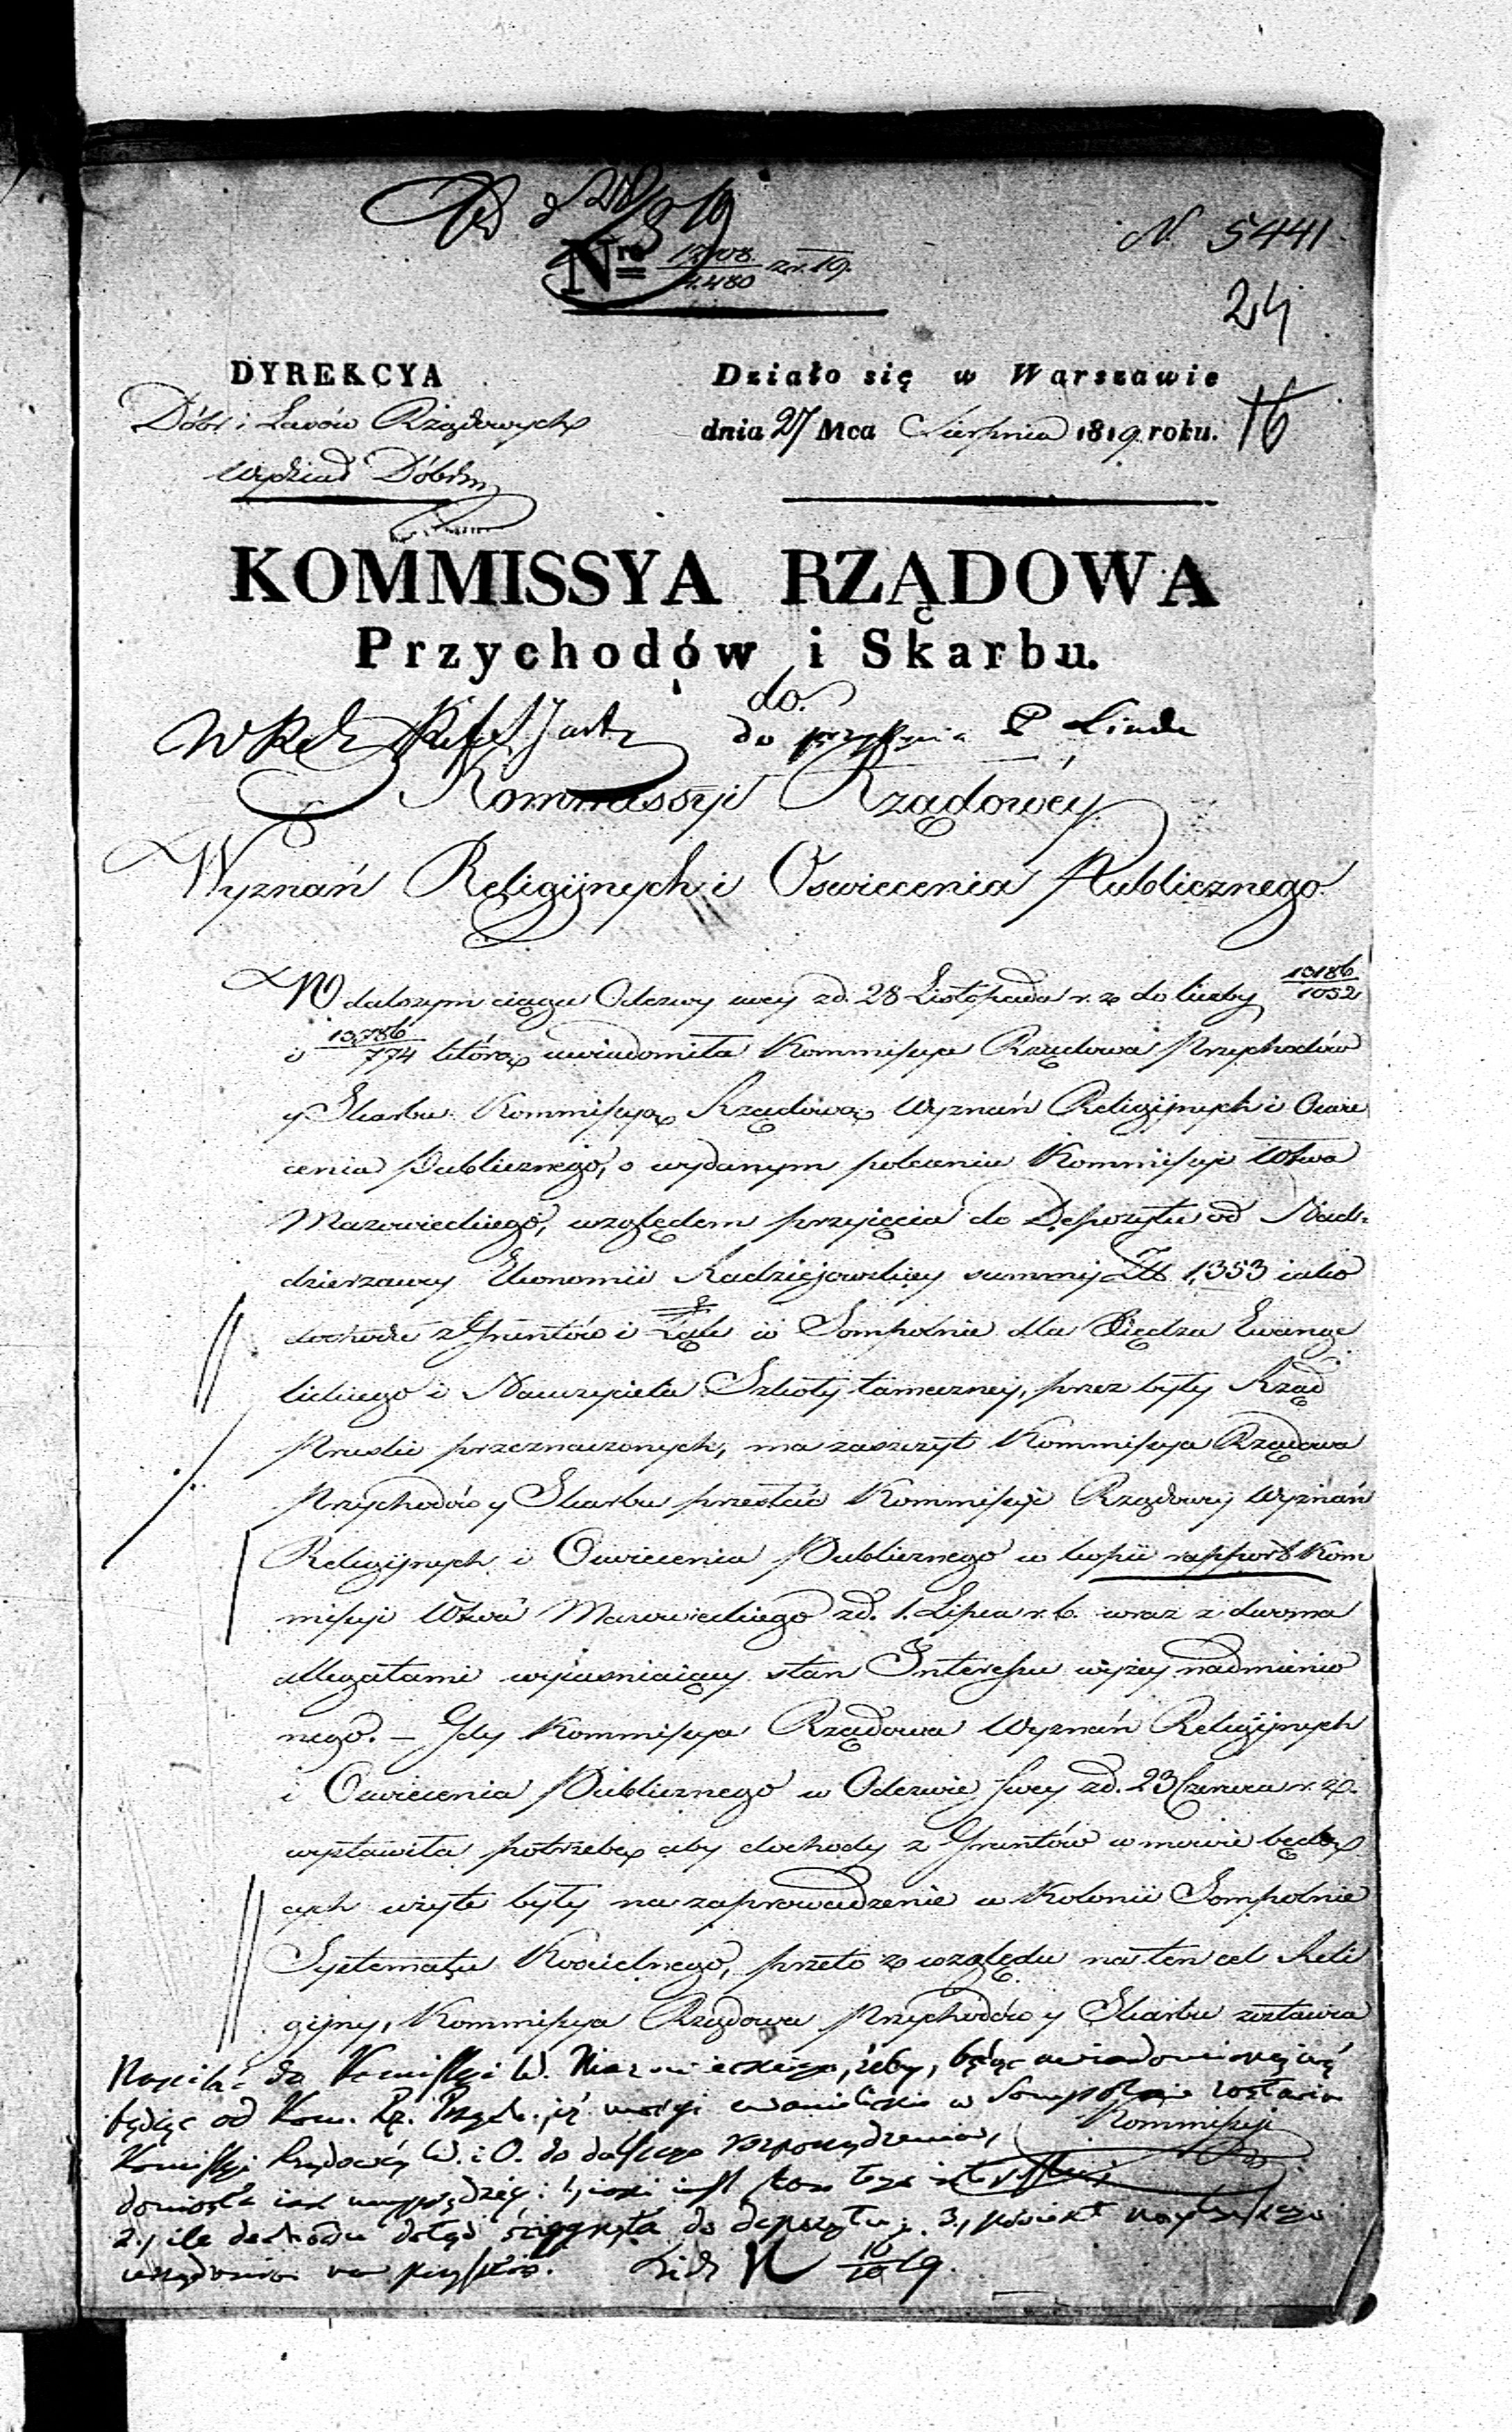 N. 5441
Nro 4.480 z r. 19.
24
DYREKCYA
Działo się w Warszawie
Dóbr i Lasów Rządowych
dnia 27 Mca Sierpnia 1819 roku.
16
Wydział Dóbr
KOMMISSYA RZĄDOWA
Przychodów i Skarbu.
do
do P Linde
Kommissyi Rządowéy
Wyznań Religijnych i Oswiecenia Publicznego
W dalszym ciągu Odezwy swey z d. 28 Listopada r. z. do liczby 10186/1052
i 13,786/774 którą uwiadomiła Kommissya Rządowa Przychodów
y Skarbu Kommissyą Rządową Wyznań Religijnych i Oswie
cenia Publicznego, o wydanym poleceniu Kommissyi Wtwa
Mazowieckiego, względem przyięcia do Depozytu od Nad-
dzierzawcy Ekonomii Radziejowskiey summy Złł 1,353 iako
dochodu z Gruntów i Łąk w Sompolnie dla Xiędza Ewange
lickiego i Nauczyciela Szkoły tameczney, przez były Rząd
Pruski przeznaczonych, ma zaszczyt Kommissya Rządowa
Przychodów y Skarbu przesłać Kommissyi Rządowey Wyznań
Religijnych i Oswiecenia Publicznego w kopii rapport Kom
missyi Wtwa Mazowieckiego z d. 1. Lipca r. b. wraz z dwoma
allegatami wyiasniaiący stan Interessu wyzey nadmienio
nego. – Gdy Kommissya Rządowa Wyznań Religijnych
i Oswiecenia Publicznego w Odezwie swey z d. 23 Czerwca r. z.
wystawiła potrzebę aby dochody z Gruntów w mowie będą
cych uzyte były na zaprowadzenie w Kolonii Sompolnie
Systematu Koscielnego, przeto ze względu na ten cel Reli
gijny, Kommissya Rządowa Przychodów y Skarbu zostawia
Kommissyi
Napisać do Komissyi W. Mazowieckiego, żeby, będąc uwiadomioną
od Kom. Rz. Przych. iż w Sompolnie zostawia
Komissyi Rządowéy W. i O. do dalszego rozporządzenia,
doniosła iak nayprędzéy: 1, iaki iest stan tego interessu;
2, ile dochodu dotąd ściągnęła do depozytu; 3,
urządzenia na przyszłość. 10/10 19.